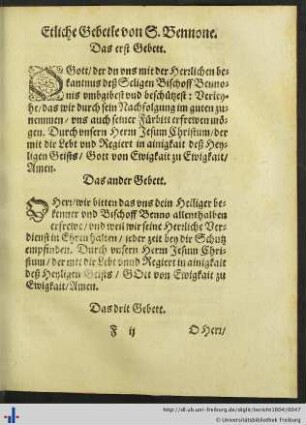 Etliche Gebetle von S. Bennone.
Das erst Gebett.
O Gott/ der du vns mit der Herrlichen be-
kantnus deß Seligen Bischoff Benno-
nis vmbgebest vnd beschützest: Verley-
he/ das wir durch sein Nachfolgung im guten zu-
nemmen/ vns auch seiner Fürbitt erfrewen mö-
gen. Durch vnsern Herrn Jesum Christum/ der
mit dir Lebt vnd Regiert in ainigkait deß Hey-
ligen Geists/ Gott von Ewigkait zu Ewigkait/
Amen.
Das ander Gebett.
O Herr/ wir bitten das vns dein Heiliger be-
kenner vnd Bischoff Benno allenthalben
erfrewe/ vnd weil wir seine Herrliche Ver-
dienst in Ehren halten/ jeder zeit bey dir Schutz
empfinden. Durch vnsern HErrn Jesum Chri-
stum/ der mit dir Lebt vnnd Regiert in ainigkait
deß Heyligen Geists/ GOtt von Ewigkait zu
Ewigkait/ Amen.
Das drit Gebett.
F ij
O Herr/
http://dl.ub.uni-freiburg.de/diglit/bericht1604/0047
© Universitätsbibliothek Freiburg